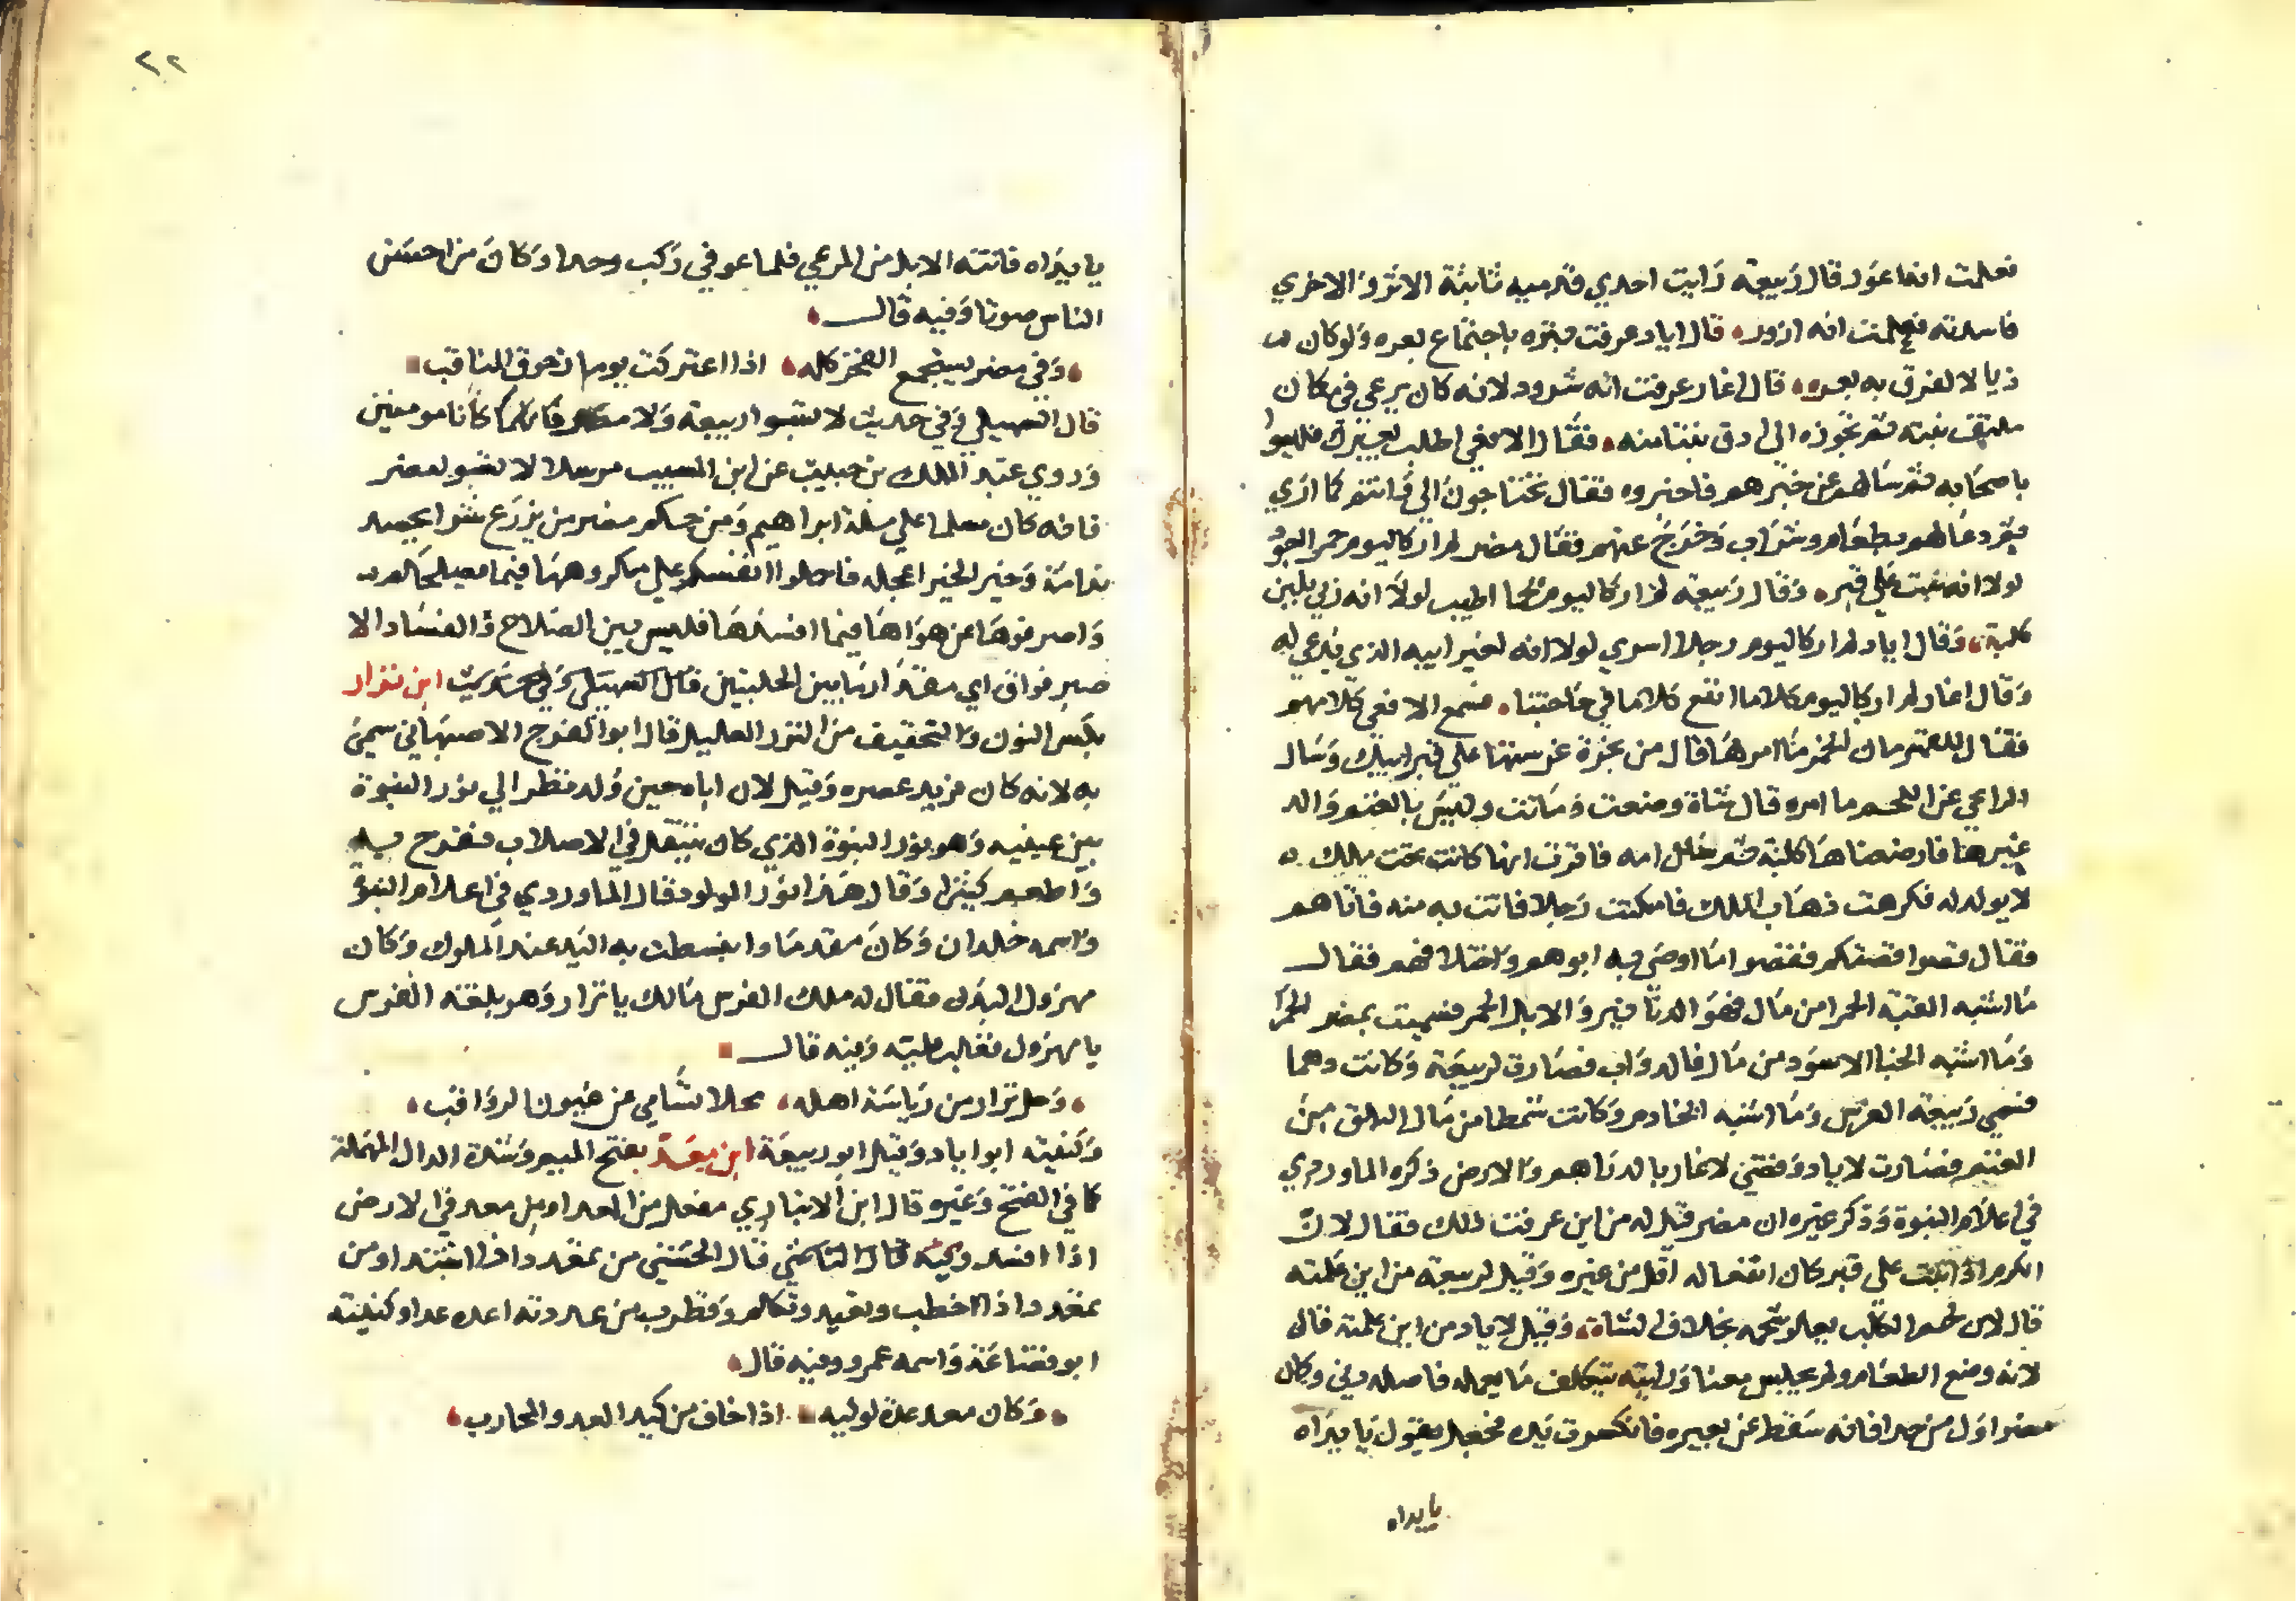 فعلمت انه اعور قال ربيعة رايت احدي قدميه ثابتة الاثر والاخري
فاسدته فعلمت انه ازور قال اياد عرفت بتره باجتماع بعره ولو كان
ذيالا لفرق به بعره قال انمار عرفت انه شرود لانه كان يرعي في مكان
ملتف نبته ثم يجوزه الي ارق نبتا منه فقال الافعي اطلب بعيرك فليسوا
باصحابه ثم سالهم عن خبرهم فاخبروه فقال تحتاجون الي وانتم كما اري
ثم دعا لهم بطعام وشراب وخرج عنهم فقال مضر لم ار كاليوم خمرا اجود
لولا انه نبت علي قبر وقال ربيعة لم ار كاليوم لحما اطيب لولا انه ربي بلبن
كلبة وقال اياد لم ار كاليوم رجلا اسري لولا انه لغير ابيه الذي يدعي له
وقال انمار لم ار كاليوم كلاما انفع كلاما في حاجتنا فسمع الافعي كلامهم
فقال للقهرمان الخمر ما امرها قال من غرسناها علي قبر ابيك وسال
الراعي عن اللحم ما امره قال شاة وضعت وماتت وليس بالغنم والد
غيرها فارضعناها كلبة ثم امه فاقرت انها كانت تحت ملك
لا يولد له فكرهت ذهاب الملك فامكنت رجلا فاتت به منه فاتاهم
فقال قصوا قصتكم فقصوا ما اوصي به ابوهم واختلافهم فقال
ما اشبه القبة الحمرا من مال فهو الدنانير والابل الحمر فسميت بمضر الحمرا
وما اشبه الخبا الاسود من مال فله دواب فصارت لربيعة وكانت دهما
فسمي ربيعة الفرس وما اشبه الخادم وكانت شمطا من مال البلق من
الغنم فصارت لاياد وقضي لانمار بالدراهم والارض ذكره الماوردي
في اعلام النبوة وذكر غيره ان مضر قيل له من اين عرفت ذلك فقال لان
الكرم اذا نبت علي قبر كان انفعاله اقل من غيره وقيل لربيعة من اين علمته
قال لان لحم الكلب يعلو شحمه بخلاف الشاة وقيل لاياد من اين علمته قال
لانه وضع الطعام ولم يجلس معنا ورايته يتكلف ما يعمله فاصله دني وكان
مضر اول من حدا فانه سقط عن بعيره فانكسرت يده فجعل يقول يا يداه
يا يداه
٢٢
يا يداه فاتته الابل من المرعي فلما عوفي ركب وحدا وكان من احسن
الناس صوتا وفيه قال
وفي مضر يستجمع الفخر كله اذا اعتركت يوما زحوف المناقب
قال السهيلي وفي حديث لا تسبوا ربيعة ولا مضر فانهما كانا مومنين
وروي عبد الملك بن حبيب عن ابن المسيب مرسلا لا تسبوا مضر
فانه كان مسلما علي ملة ابراهيم ومن حكم مضر من يزرع شرا يحصد
ندامة وخير الخير اعجله فاحملوا انفسكم علي مكروهها فيما يصلحكم
واصرفوها عن هواها فيما افسدها فليس بين الصلاح والفساد الا
صبر فواق اي مقدار ما بين الحلبتين قال السهيلي وفي حديث ابن نزار
بكسر النون والتخفيف من النزر القليل قال ابو الفرج الاصبهاني سمي
به لانه كان فريد عصره وقيل لان اباه حين ولد نظر الي نور النبوة
بين عينيه وهو نور النبوة الذي كان ينتقل في الاصلاب ففرح به
واطعم كثيرا وقال هذا نزر المولود قال الماوردي في اعلام النبوة
واسمه خلدان وكان مقدما وانبسطت به اليد عند الملوك وكان
مهزول البدن فقال له ملك الفرس مالك يا نزار وهو بلغة الفرس
يا مهزول فغلب عليه وفيه قال
وحل نزار من رياسة اهله محلا تسامي عن عيون الرواقب
وكنيته ابو اياد وقيل ابو ربيعة ابن معد بفتح الميم وشدة الدال المهملة
كما في الفتح وغيره قال ابن الانباري مفعل من العد او من معد في الارض
اذا افسد قال الخشني من تمعدد اذا اشتد او من
تمعدد
ابو قضاعة واسمه عمرو وفيه قال
وكان معد عدة لوليه اذا خاف من كيد العدو المحارب